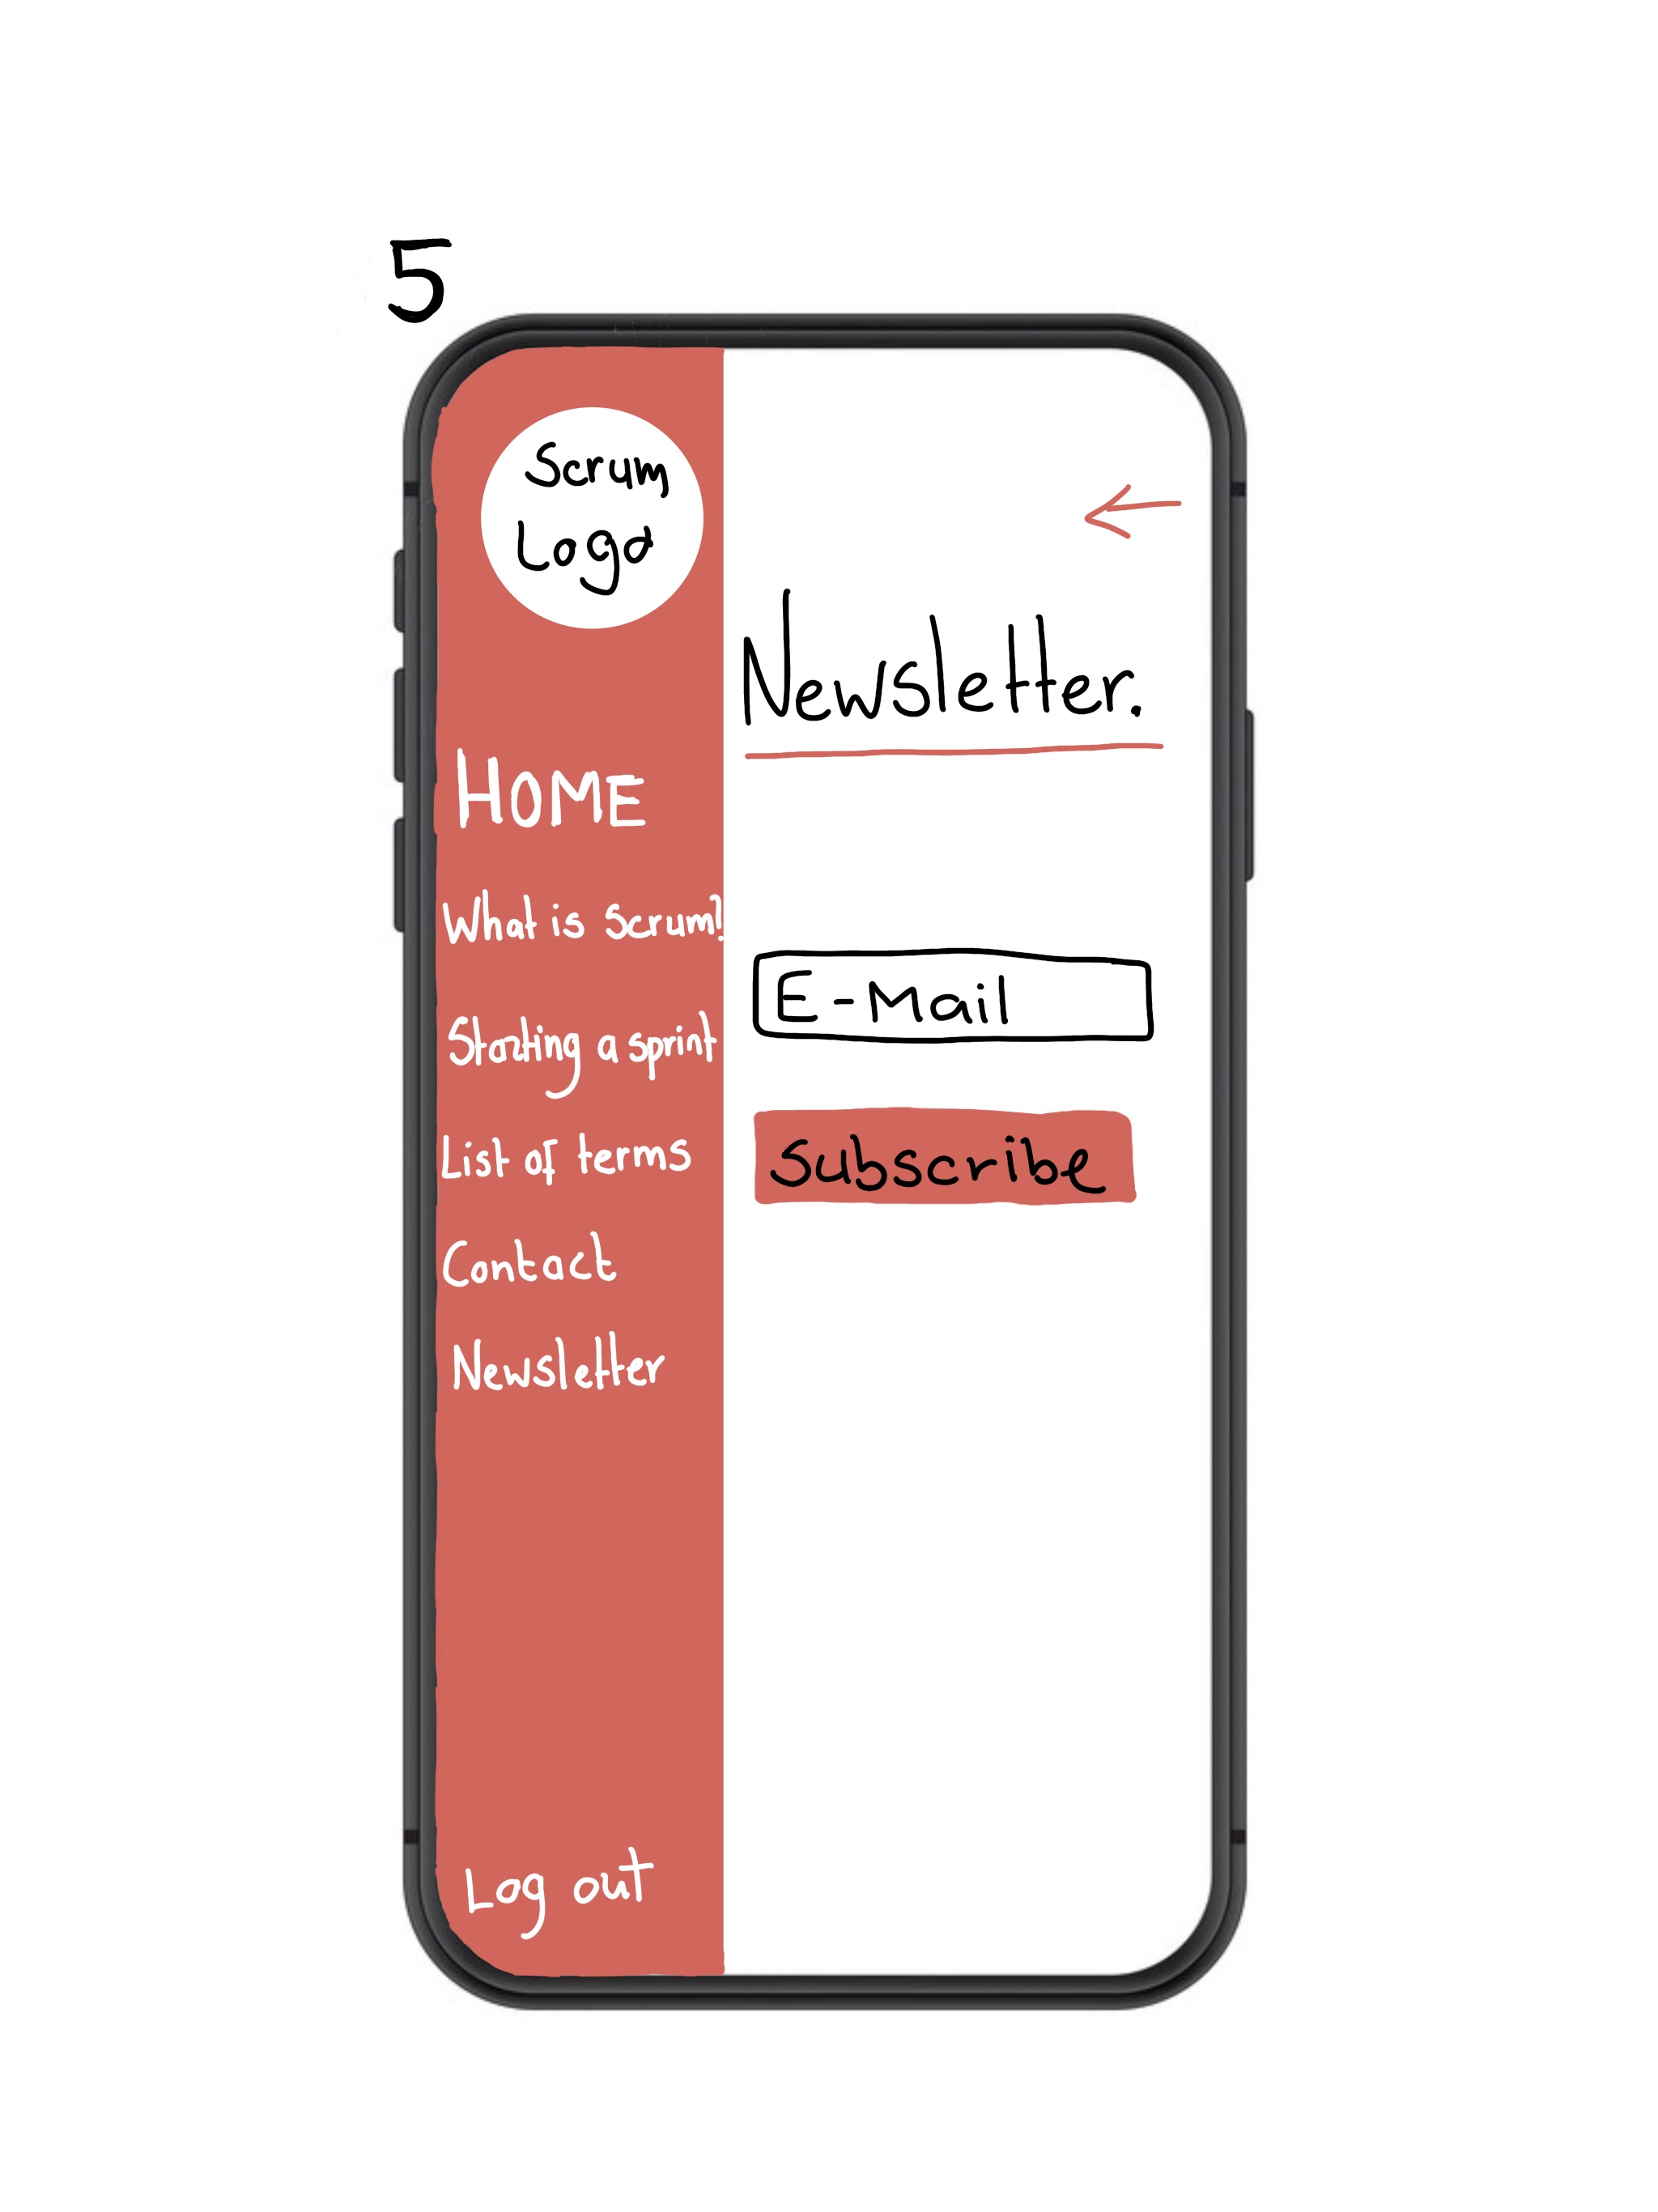 5
Scrum
Logo
HOME
What is Scrum?
Starting a sprint
List of terms
Contact
Newsletter
Log out
Newsletter.
E-Mail
Subscribe